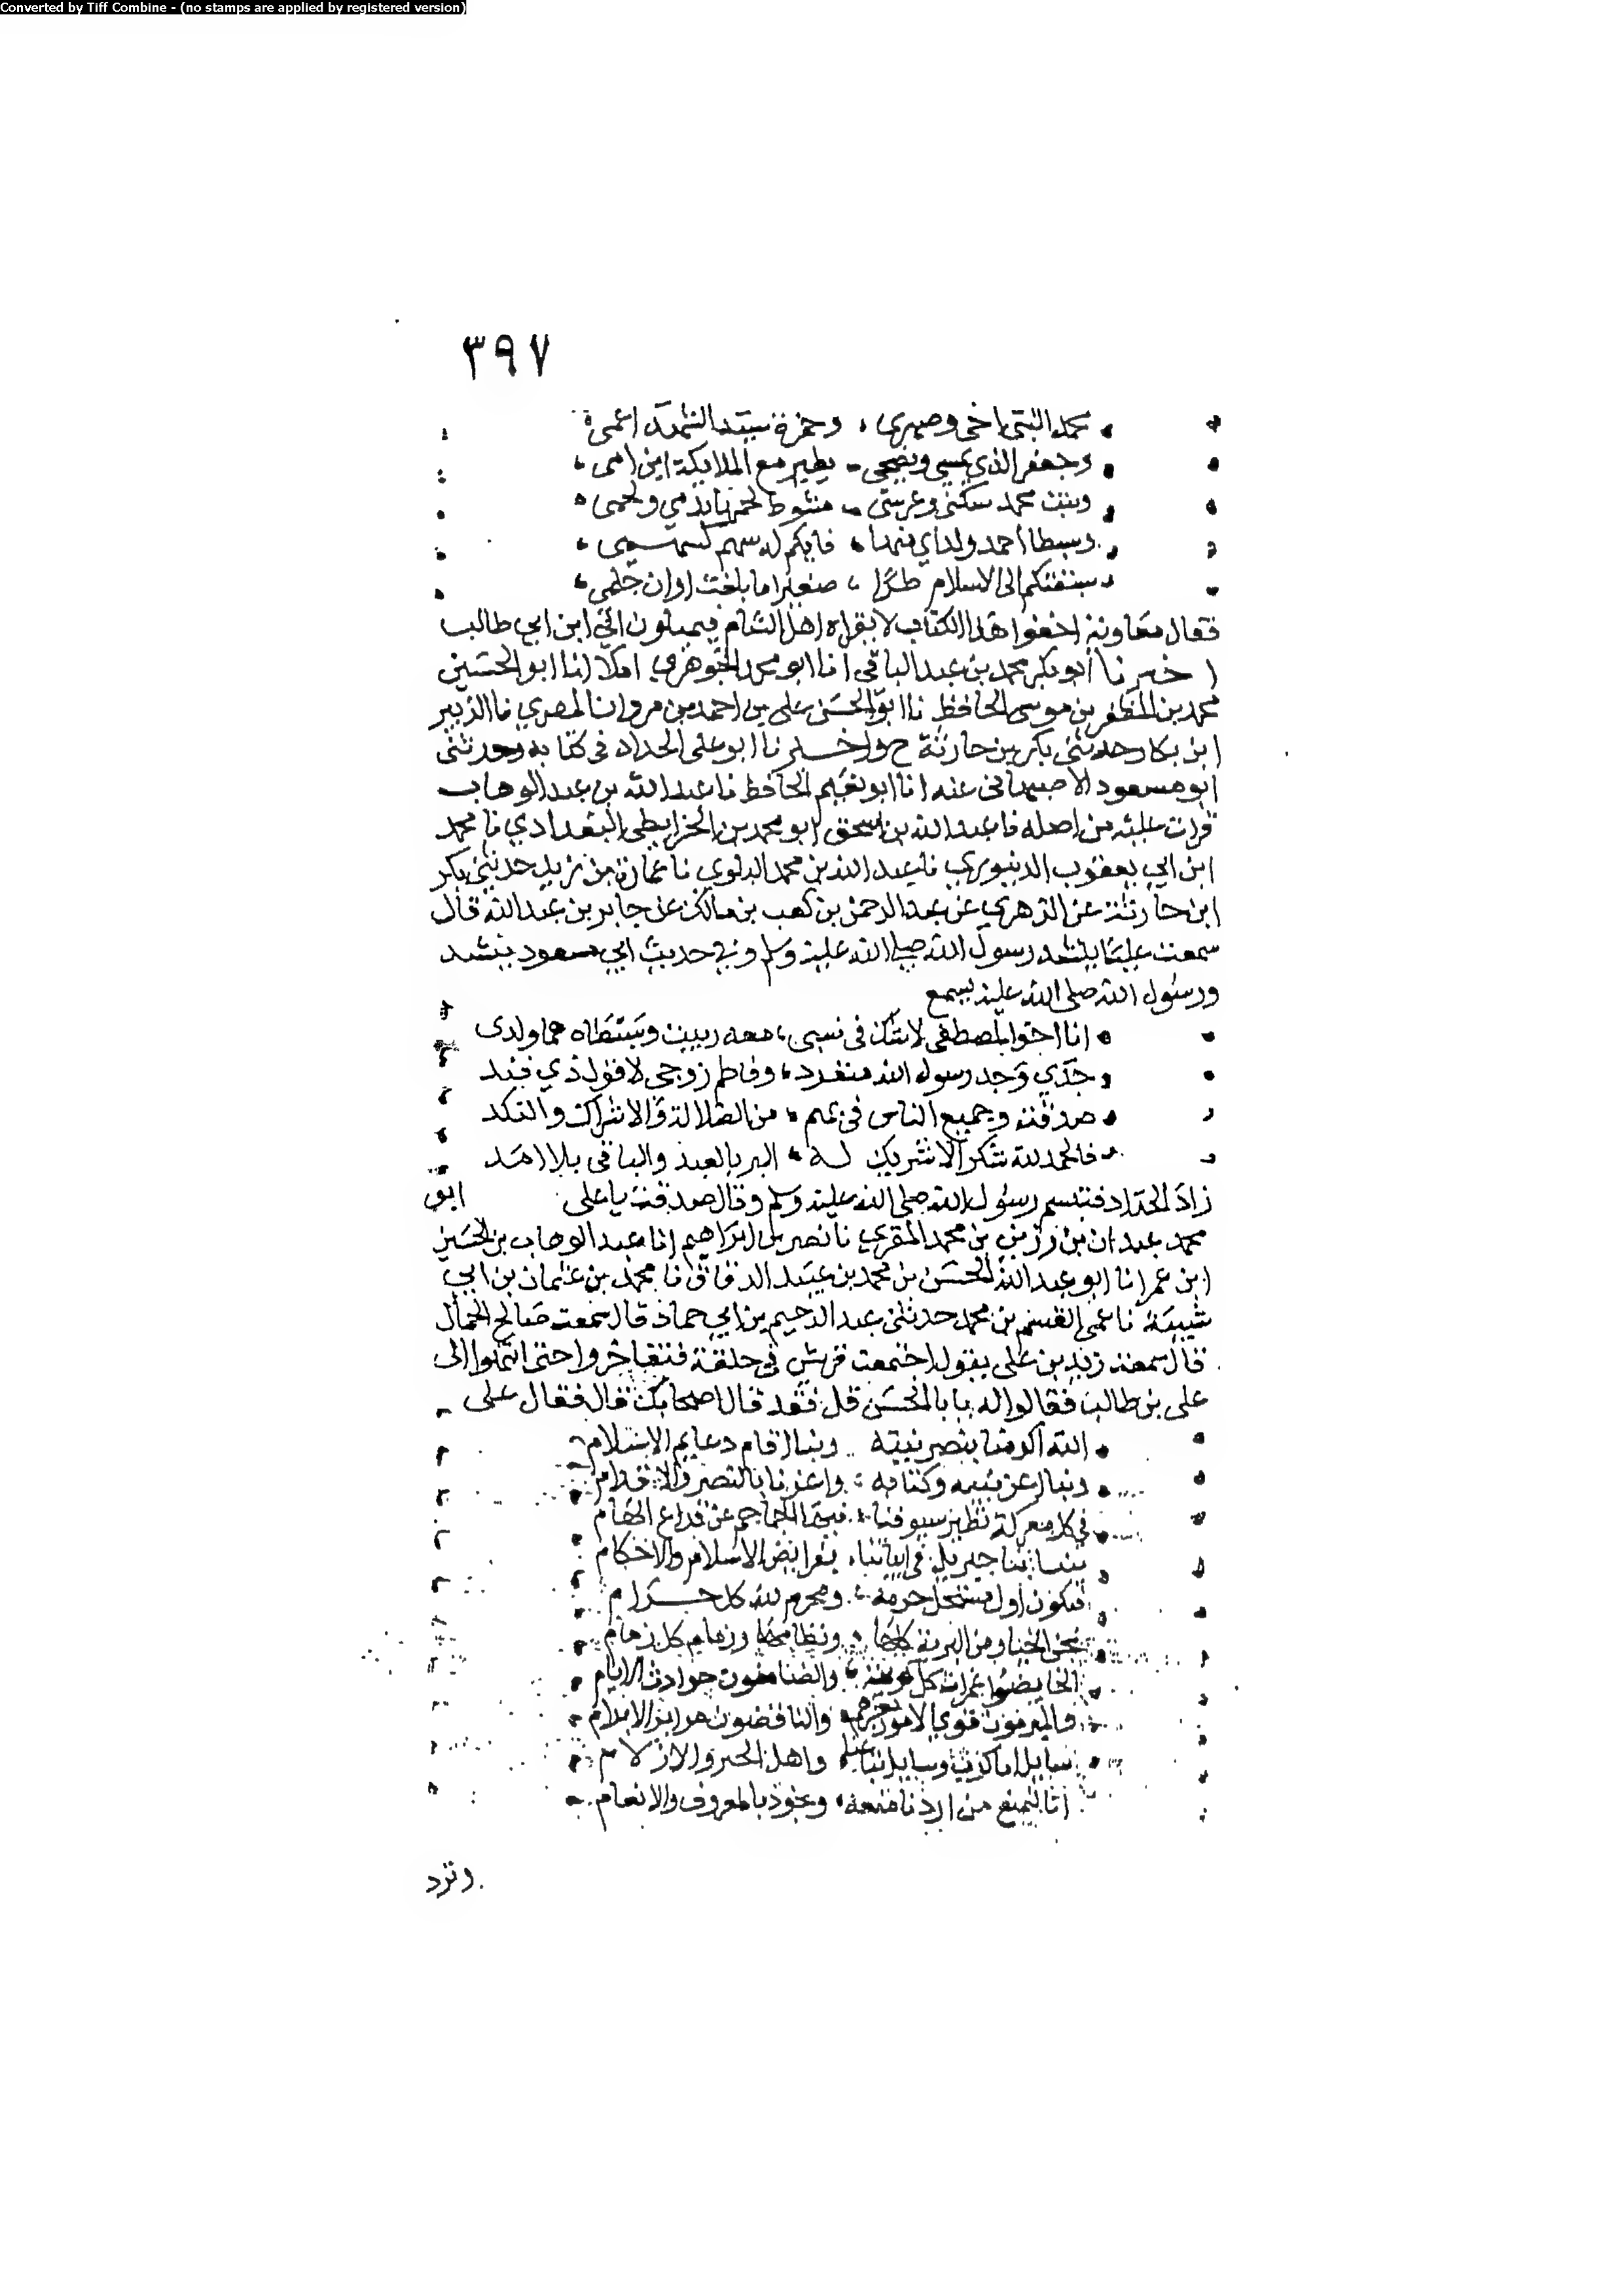 Converted by Tiff Combine - (no stamps are applied by registered version)
٣٩٧
محمد النبي اخي وصهري وحمزة سيد الشهداء عمي
وجعفر الذي يمسي ويضحي يطير مع الملايكة ابن امي
وبنت محمد سكني وعرسي منوط لحمها بدمي ولحمي
وسبطا احمد ولداي منها فايكم له سهم كسهمي
سبقتكم الى الاسلام طرا صغيرا ما بلغت اوان حلمي
فقال معاوية اخفوا هذا الكتاب لا يقراه اهل الشام فيميلون الى ابن ابي طالب
اخبرنا ابو بكر محمد بن عبد الباقي انا ابو محمد الجوهري املا انا ابو الحسين
محمد بن المظفر بن موسى الحافظ نا ابو الحسن علي بن احمد بن مروان المصري نا الزبير
ابن بكار حدثني بكر بن حارثة ح واخبرنا ابو علي الحداد في كتابه وحدثني
ابو مسعود الاصبهاني عنه انا ابو نعيم الحافظ نا عبد الله بن عبد الوهاب
قرات عليه من اصله نا عبد الله بن اسحق ابو محمد بن الخرايطي البغدادي نا محمد
ابن ابي يعقوب الدينوري نا عبد الله بن محمد البلوي نا عمارة بن زيد حدثني بكر
ابن حارثة عن الزهري عن عبد الرحمن بن كعب بن مالك عن جابر بن عبد الله قال
سمعت عليا ينشد رسول الله صلى الله عليه وسلم وفي حديث ابي مسعود ينشد
ورسول الله صلى الله عليه يسمع
انا اخو المصطفى لا شك في نسبي معه ربيت وسبطاه هما ولدي
جدي وجد رسول الله منفرد وفاطم زوجتي لا قول ذي فند
صدقته وجميع الناس في بهم من الضلالة والاشراك والنكد
فالحمد لله شكرا لا شريك له البر بالعبد والباقي بلا امد
زاد الحداد فتبسم رسول الله صلى الله عليه وسلم وقال صدقت يا علي ابو
محمد عبدان بن رزين بن محمد المقري نا نصر بن ابراهيم انا عبد الوهاب بن الحسين
ابن عمر انا ابو عبد الله الحسين بن محمد بن عبيد الدقاق نا محمد بن عثمان بن ابي
شيبة نا عمي القسم بن محمد حدثني عبد الرحيم بن ابي حماد قال سمعت صالح الحمال
قال سمعت زيد بن علي يقول اجتمعت قريش في حلقة فتفاخروا حتى انتهوا الى
علي بن طالب فقالوا له يا با الحسن قل فقد قال اصحابك قال فقال علي
الله اكرمنا بنصر نبيه وبنا اقام دعايم الاسلام
وبنا اعز نبيه وكتابه واعزنا بالنصر والاقدام
في كل معركة تطير سيوفنا فيها الجماجم عن فراخ الهام
ينتابنا جبريل في ابياتنا بفرايض الاسلام والاحكام
فنكون اول مستحل حرمه ومحرم لله كل حرام
نحن الخيار من البرية كلها ونظامها وزمام كل زمام
الخايضوا غمرات كل كريهة والضامنون حوادث الايام
والمبرمون قوي الامور بعزهم والناقضون مراير الابرام
سايل ابا كرب وسايل تبعا واهل العتر والازلام
انا لنمنع من اردنا منعه ونجود بالمعروف والانعام
وترد